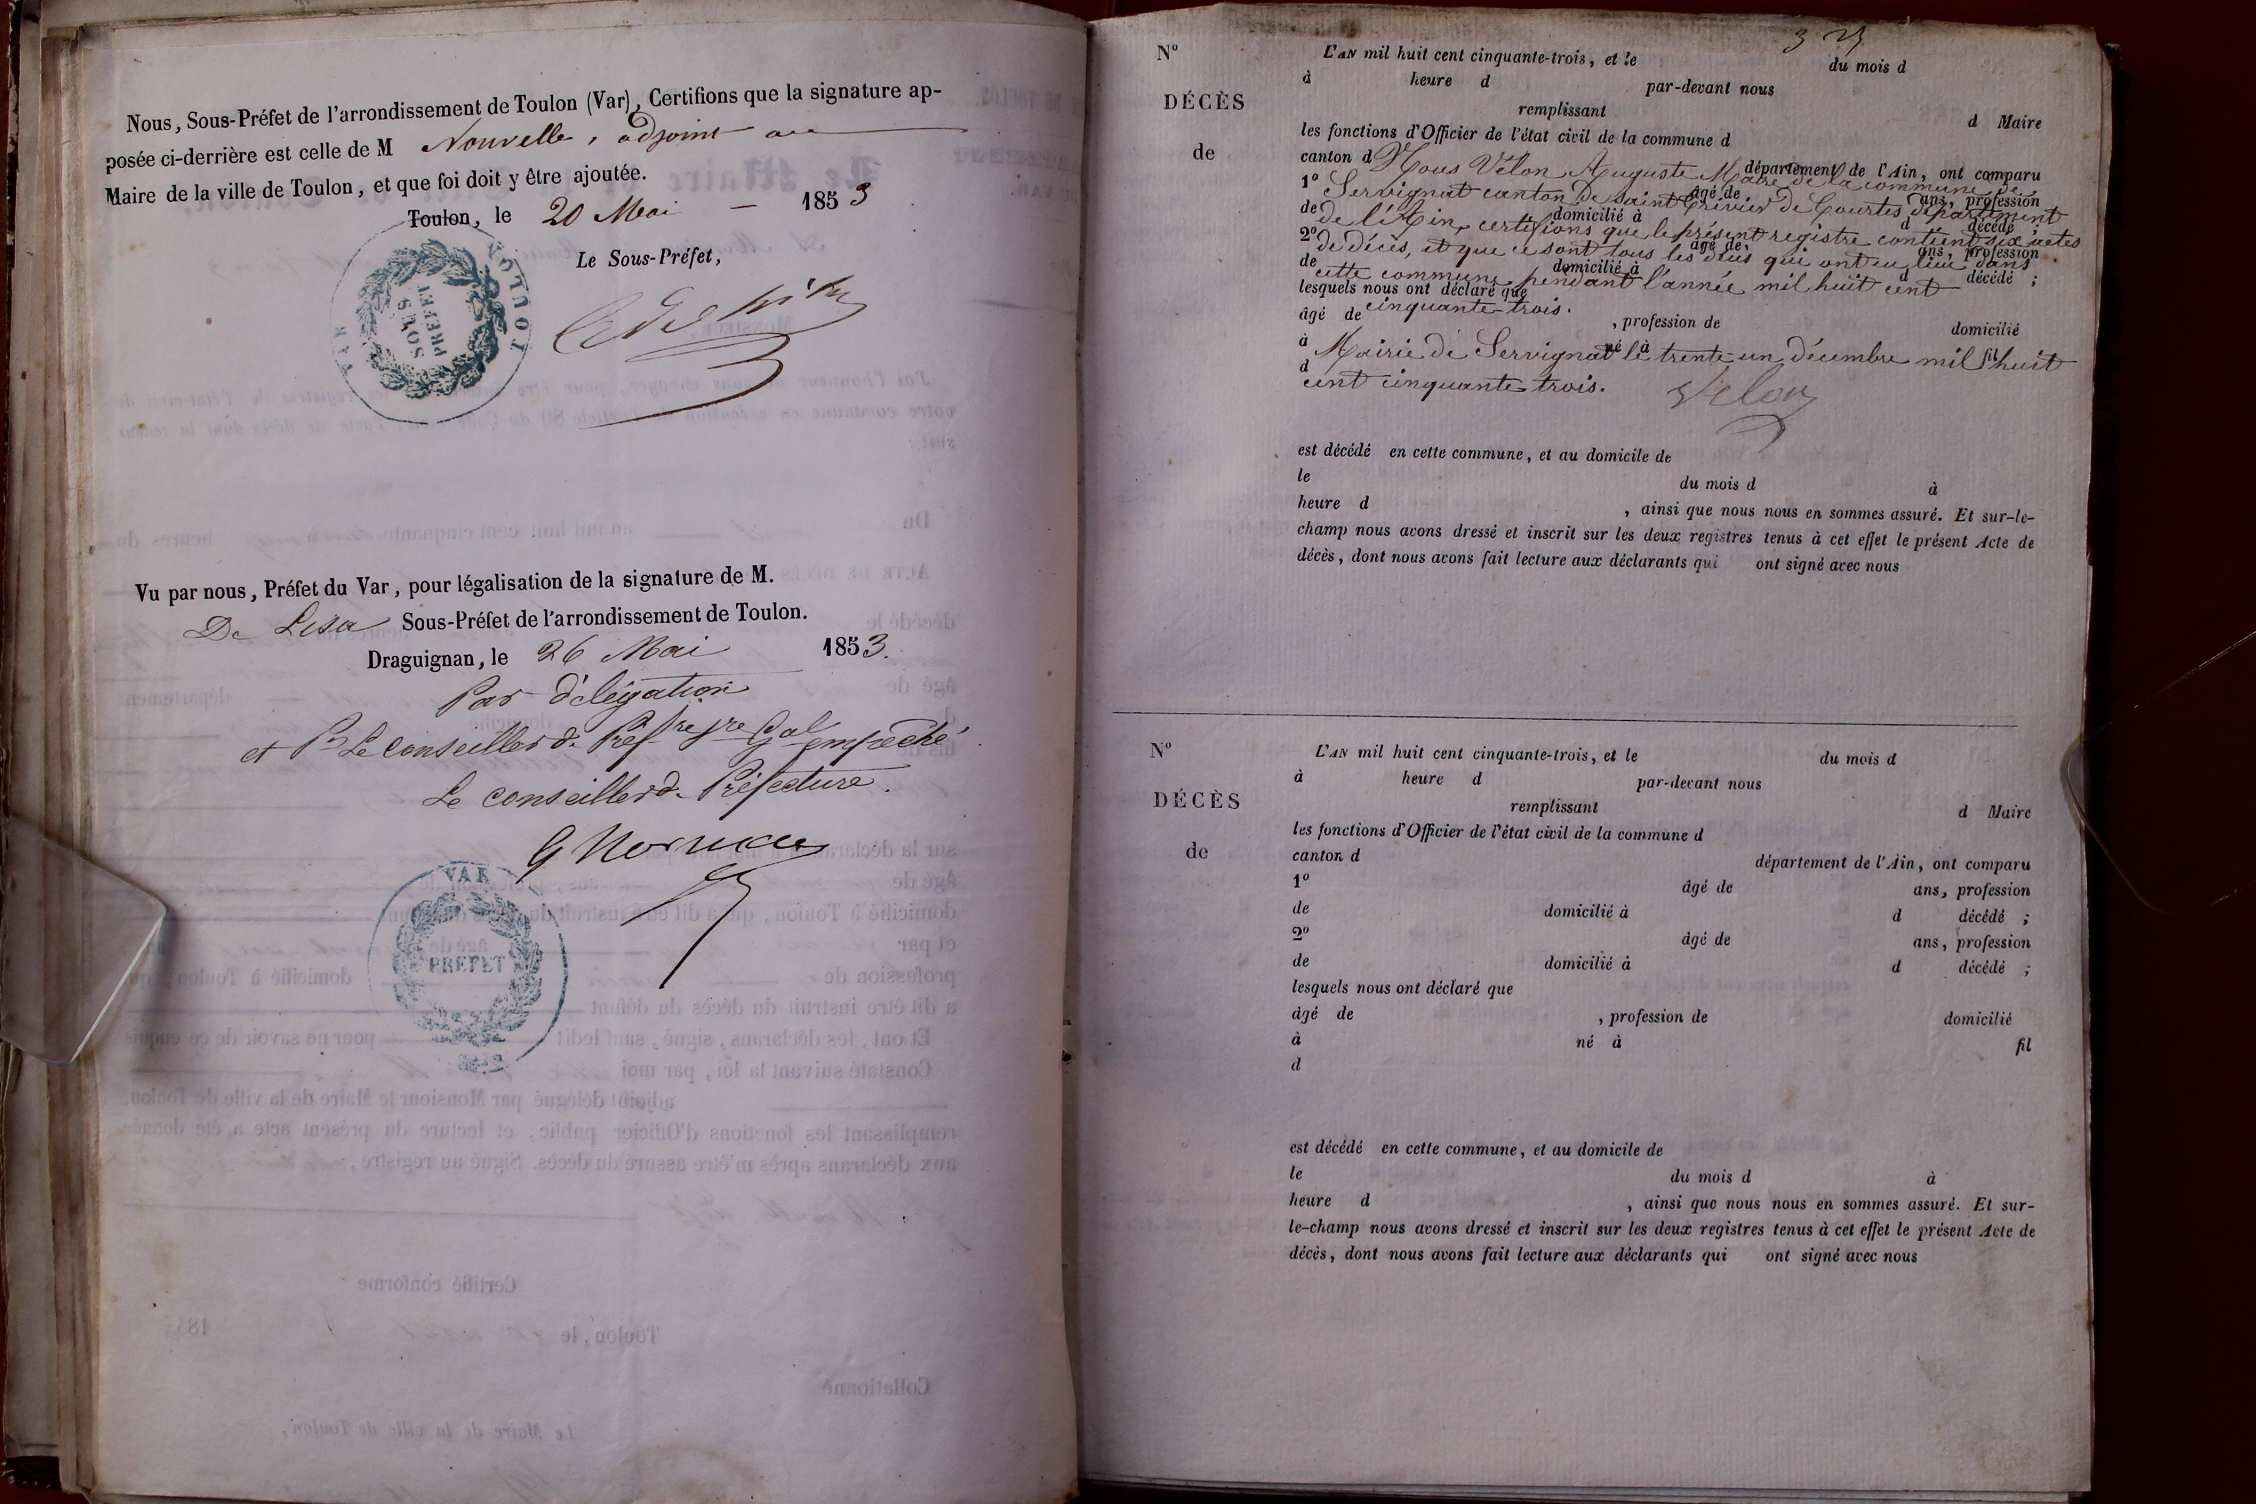 Nous, Sous-Préfet de l'arrondissement de Toulon (Var), Certifions que la signature ap-
posée ci-derrière est celle de M Nouvelle, adjoint au
Maire de la ville de Toulon, et que foi doit y être ajoutée.
Toulon, le 20 Mai 1853
Le Sous-Préfet,
TOULON
SOUS
PREFET
VAR
Vu par nous, Préfet du Var, pour légalisation de la signature de M.
De Lisa Sous-Préfet de l'arrondissement de Toulon.
Draguignan, le 26 Mai 1853.
Par délégation
et Pr Le Conseiller de Préfre Gal empêché
Le conseiller de Préfecture.
VAR
PREFET
Nº
DÉCÈS
de
L'AN mil huit cent cinquante-trois, et le du mois d
à heure d par-devant nous
remplissant d Maire
les fonctions d'Officier de l'état civil de la commune d
canton d département de l'Ain, ont comparu
1º âgé de ans, profession
de domicilié à d décédé ;
2º âgé de ans, profession
de domicilié à d décédé ;
lesquels nous ont déclaré que
âgé de , profession de domicilié
à né à fil
d
Nous Vélon Auguste Maire de la commune de
Servignat canton de Saint Trivier de Courtes département
de l'Ain, certifions que le présent registre contient six actes
de décès, et que ce sont tous les seuls qui ont eu lieu dans
cette commune pendant l'année mil huit cent
cinquante-trois.
Mairie de Servignat le trente-un décembre mil huit
cent cinquante trois.
Velon
est décédé en cette commune, et au domicile de
le du mois d à
heure d , ainsi que nous nous en sommes assuré. Et sur-le-
champ nous avons dressé et inscrit sur les deux registres tenus à cet effet le présent Acte de
décès, dont nous avons fait lecture aux déclarants qui ont signé avec nous
Nº
DÉCÈS
de
L'AN mil huit cent cinquante-trois, et le du mois d
à heure d par-devant nous
remplissant d Maire
les fonctions d'Officier de l'état civil de la commune d
canton d département de l'Ain, ont comparu
1º âgé de ans, profession
de domicilié à d décédé ;
2º âgé de ans, profession
de domicilié à d décédé ;
lesquels nous ont déclaré que
âgé de , profession de domicilié
à né à fil
d
est décédé en cette commune, et au domicile de
le du mois d à
heure d , ainsi que nous nous en sommes assuré. Et sur-
le-champ nous avons dressé et inscrit sur les deux registres tenus à cet effet le présent Acte de
décès, dont nous avons fait lecture aux déclarants qui ont signé avec nous